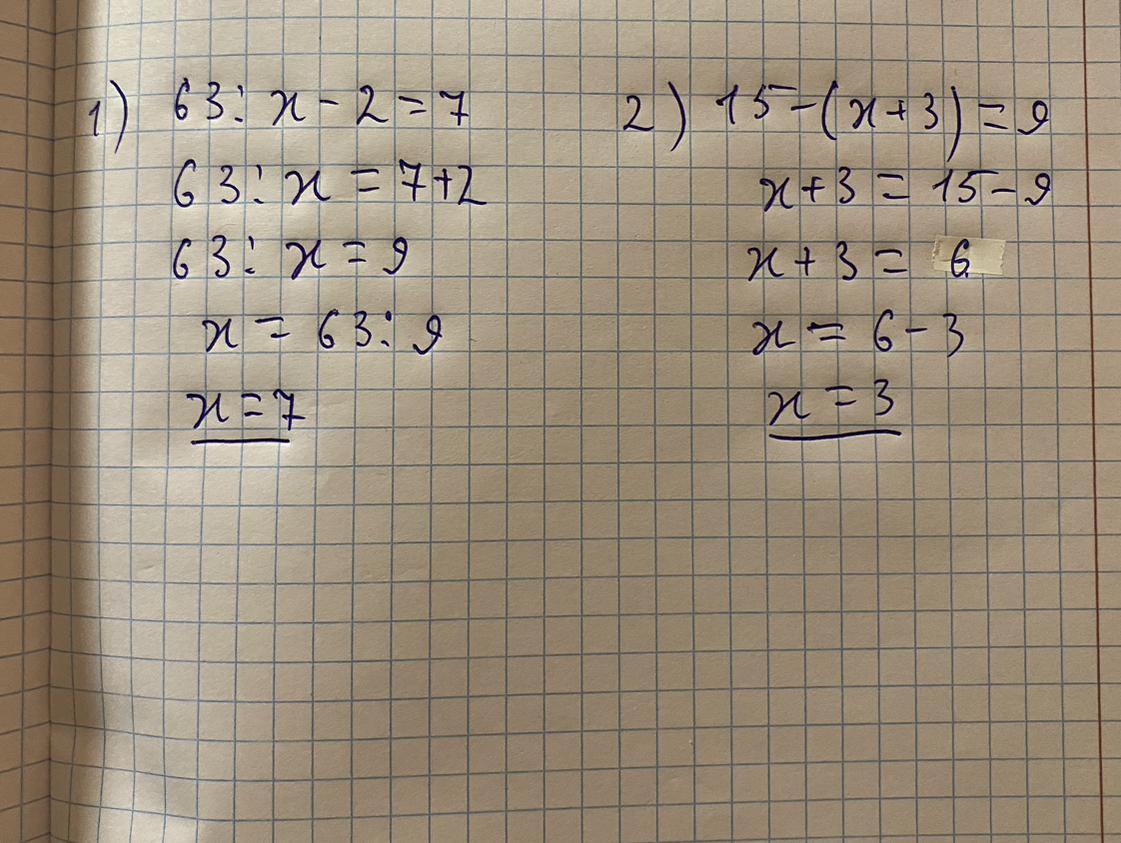 1) 63: x - 2 = 7
63: x = 7+2
63: x = 9
x = 63: 9
x = 7
2) 15-(x+3) = 9
x+3 = 15-9
x+3 = 6
x = 6-3
x = 3